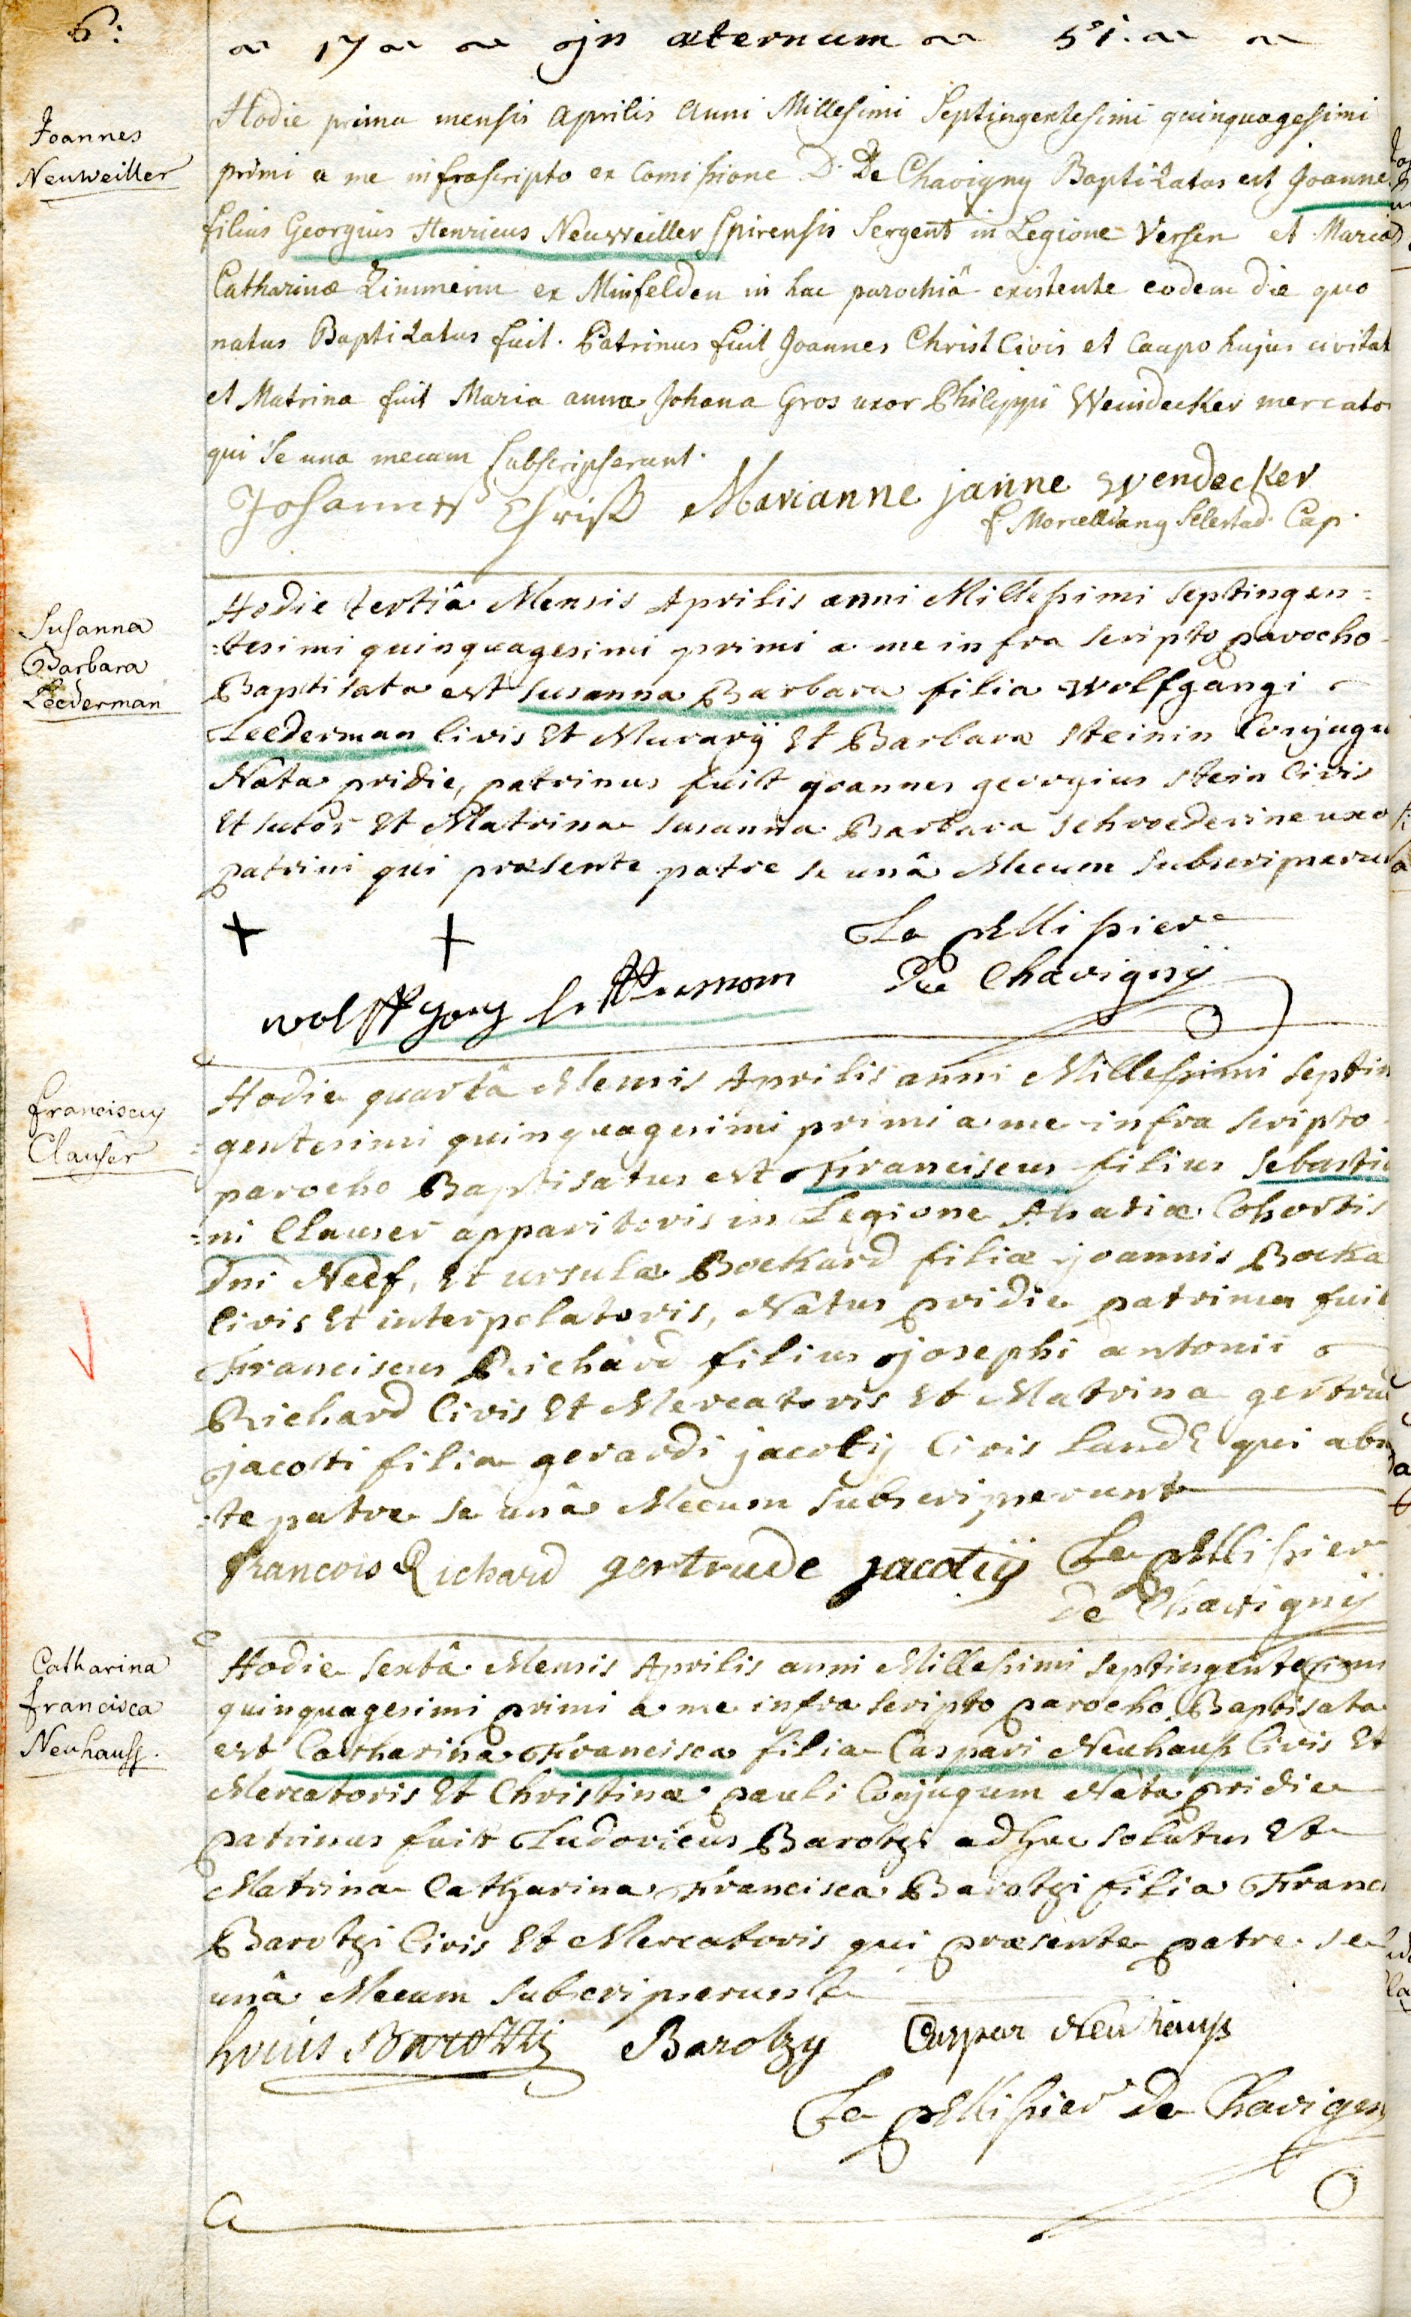 6:
17 jn æternum 51.
Joannes
Neuweiller
Hodie prima mensis aprilis anni Millesimi Septingentesimi quinquagesimi
primi a me infrascripto ex Comissione D. De Chavigny Baptizatus est Joannes
filius Georgius Henricus Neuweiller Spirensis Sergent in Legione Versen et Maria
Catharinæ Zimmerin ex Minfelden in hac parochiâ existente eodem die quo
natus Baptizatus fuit. Patrinus fuit Joannes Christ Civis et Caupo hujus civitat
et Matrina fuit Maria anna Johana Gros uxor Philippi Weindecker mercato
qui se una mecum subscripserunt.
Johannes Christ Marianne janne Wendecker
f Marcellian Selestad. Cap.
Susanna
Barbara
Leederman
Hodie tertiâ Mensis Aprilis anni Millesimi septingen=
=tesimi quinquagesimi primi a me infra scripto parocho
Baptisata est susanna Barbara filia Wolfgangi
Leederman Civis Et Murarij Et Barbaræ steinin Conjugu
Nata pridie, patrinus fuit joannes georgius stein Civis
Et sutor Et Matrina susanna Barbara schroederine uxo
patrini qui præsente patre se unâ Mecum subscripseru
+ +
Le pellissier
De Chavignÿ
wolffgang letterman
franciscus
Clauser
Hodie quartâ Mensis Aprilis anni Millesimi septin
=gentesimi quinquagesimi primi a me infra scripto
parocho Baptisatus est Franciscus filius sebastia
=ni Clauser apparitoris in Legione Alsatiæ Cohortis
Dni Neef, Et ursulæ Bockard filiæ joannis Bocka
Civis Et interpolatoris, Natus pridie patrinus fuit
Franciscus Richard filius josephi antonii
Richard Civis Et Mercatoris Et Matrina gertrud
jacoti filia gerardi jacotij Civis Land: qui abs
=te patre se unâ Mecum subscripserunt
francois Richard gertrude jacotiÿ Le pellissier
de Chavignÿ
Catharina
francisca
Neuhauss.
Hodie sextâ Mensis Aprilis anni Millesimi septingentesimi
quinquagesimi primi a me infra scripto parocho Baptisata
est Catharina Francisca filia Caspari Neuhauss Civis Et
Mercatoris Et Christinæ pauli Conjugum Nata pridie
patrinus fuit Ludovicus Barotzi adhuc solutus Et
Matrina Catharina Francisca Barotzi filia Franci
Barotzi Civis Et Mercatoris qui præsente patre se
unâ Mecum subscripserunt
Louis Barozzi Barotzy Caspar Neuhauss
Le pellissier De Chavigny